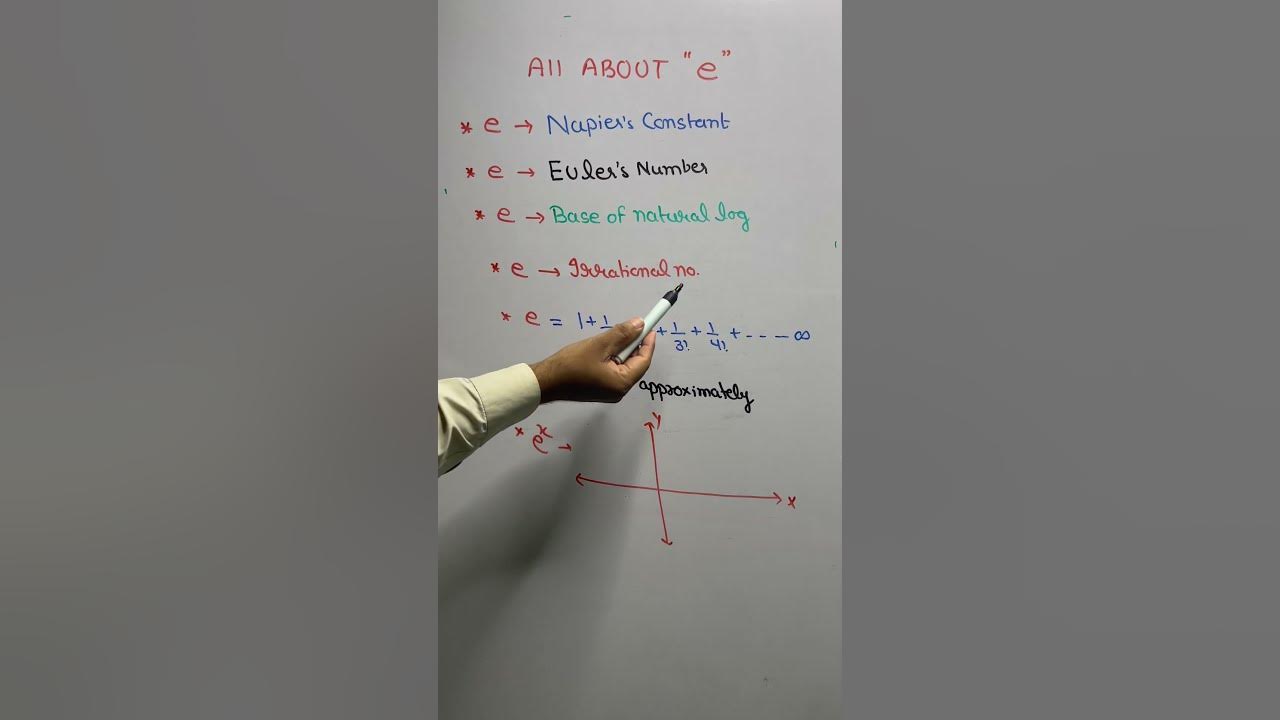 All ABOUT "e"
* e → Napier's Constant
* e → Euler's Number
* e → Base of natural log
* e → Irrational no.
* e = 1 + 1/ + 1/3! + 1/4! + - - - ∞
approximately
* e^x →
y
x